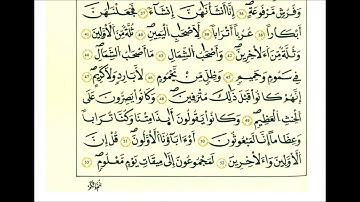 وَفُرُشٍ مَرْفُوعَةٍ ٣٤ إِنَّا أَنْشَأْنَاهُنَّ إِنْشَاءً ٣٥ فَجَعَلْنَاهُنَّ
أَبْكَارًا ٣٦ عُرُبًا أَتْرَابًا ٣٧ لِأَصْحَابِ الْيَمِينِ ٣٨ ثُلَّةٌ مِنَ الْأَوَّلِينَ ٣٩
وَثُلَّةٌ مِنَ الْآخِرِينَ ٤٠ وَأَصْحَابُ الشِّمَالِ مَا أَصْحَابُ الشِّمَالِ ٤١
فِي سَمُومٍ وَحَمِيمٍ ٤٢ وَظِلٍّ مِنْ يَحْمُومٍ ٤٣ لَا بَارِدٍ وَلَا كَرِيمٍ ٤٤
إِنَّهُمْ كَانُوا قَبْلَ ذَلِكَ مُتْرَفِينَ ٤٥ وَكَانُوا يُصِرُّونَ عَلَى
الْحِنْثِ الْعَظِيمِ ٤٦ وَكَانُوا يَقُولُونَ أَئِذَا مِتْنَا وَكُنَّا تُرَابًا
وَعِظَامًا أَإِنَّا لَمَبْعُوثُونَ ٤٧ أَوَآبَاؤُنَا الْأَوَّلُونَ ٤٨ قُلْ إِنَّ
الْأَوَّلِينَ وَالْآخِرِينَ ٤٩ لَمَجْمُوعُونَ إِلَى مِيقَاتِ يَوْمٍ مَعْلُومٍ ٥٠